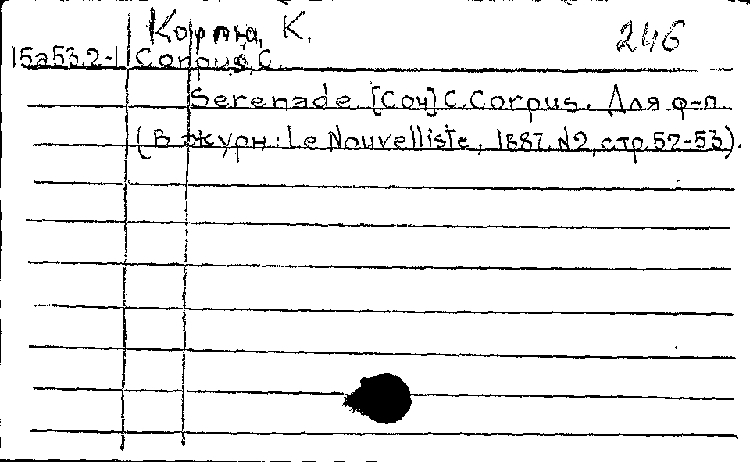 Корпю, К. 246
15a53.2-1 Corpus, C.
Serenade. [Соч] C. Corpus. Для ф-п.
(В журн: Le Nouvelliste, 1887, N2, стр. 52-53).